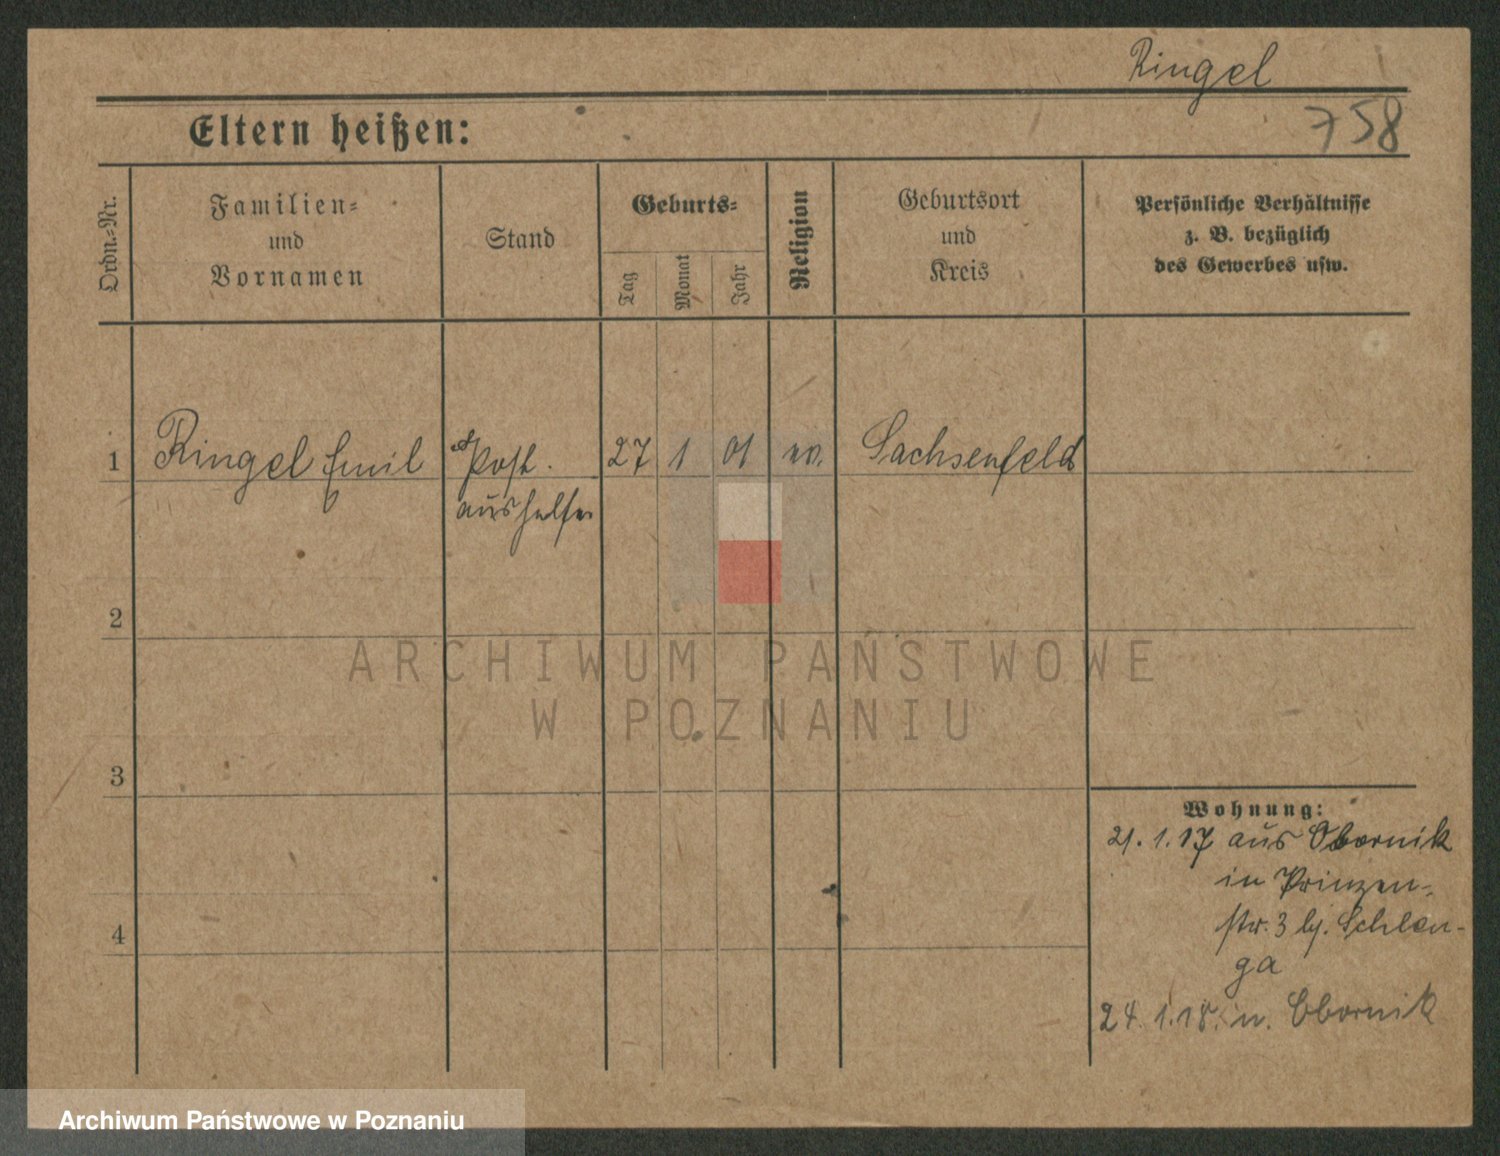 Ringel
758
Eltern heißen:
Ordn.-Nr.
Familien-
und
Vornamen
Stand
Geburts-
Tag
Monat
Jahr
Religion
Geburtsort
und
Kreis
Persönliche Verhältnisse
z. B. bezüglich
des Gewerbes usw.
1
Ringel Emil
Post.
aushelfer
27
1
01
ev.
Sachsenfeld
2
ARCHIWUM PAŃSTWOWE
W POZNANIU
3
Wohnung:
21.1.17 aus Obornik
in Prinzen-
str. 3 bj. Schlen-
ga
4
24.1.18. n. Obornik
Archiwum Państwowe w Poznaniu